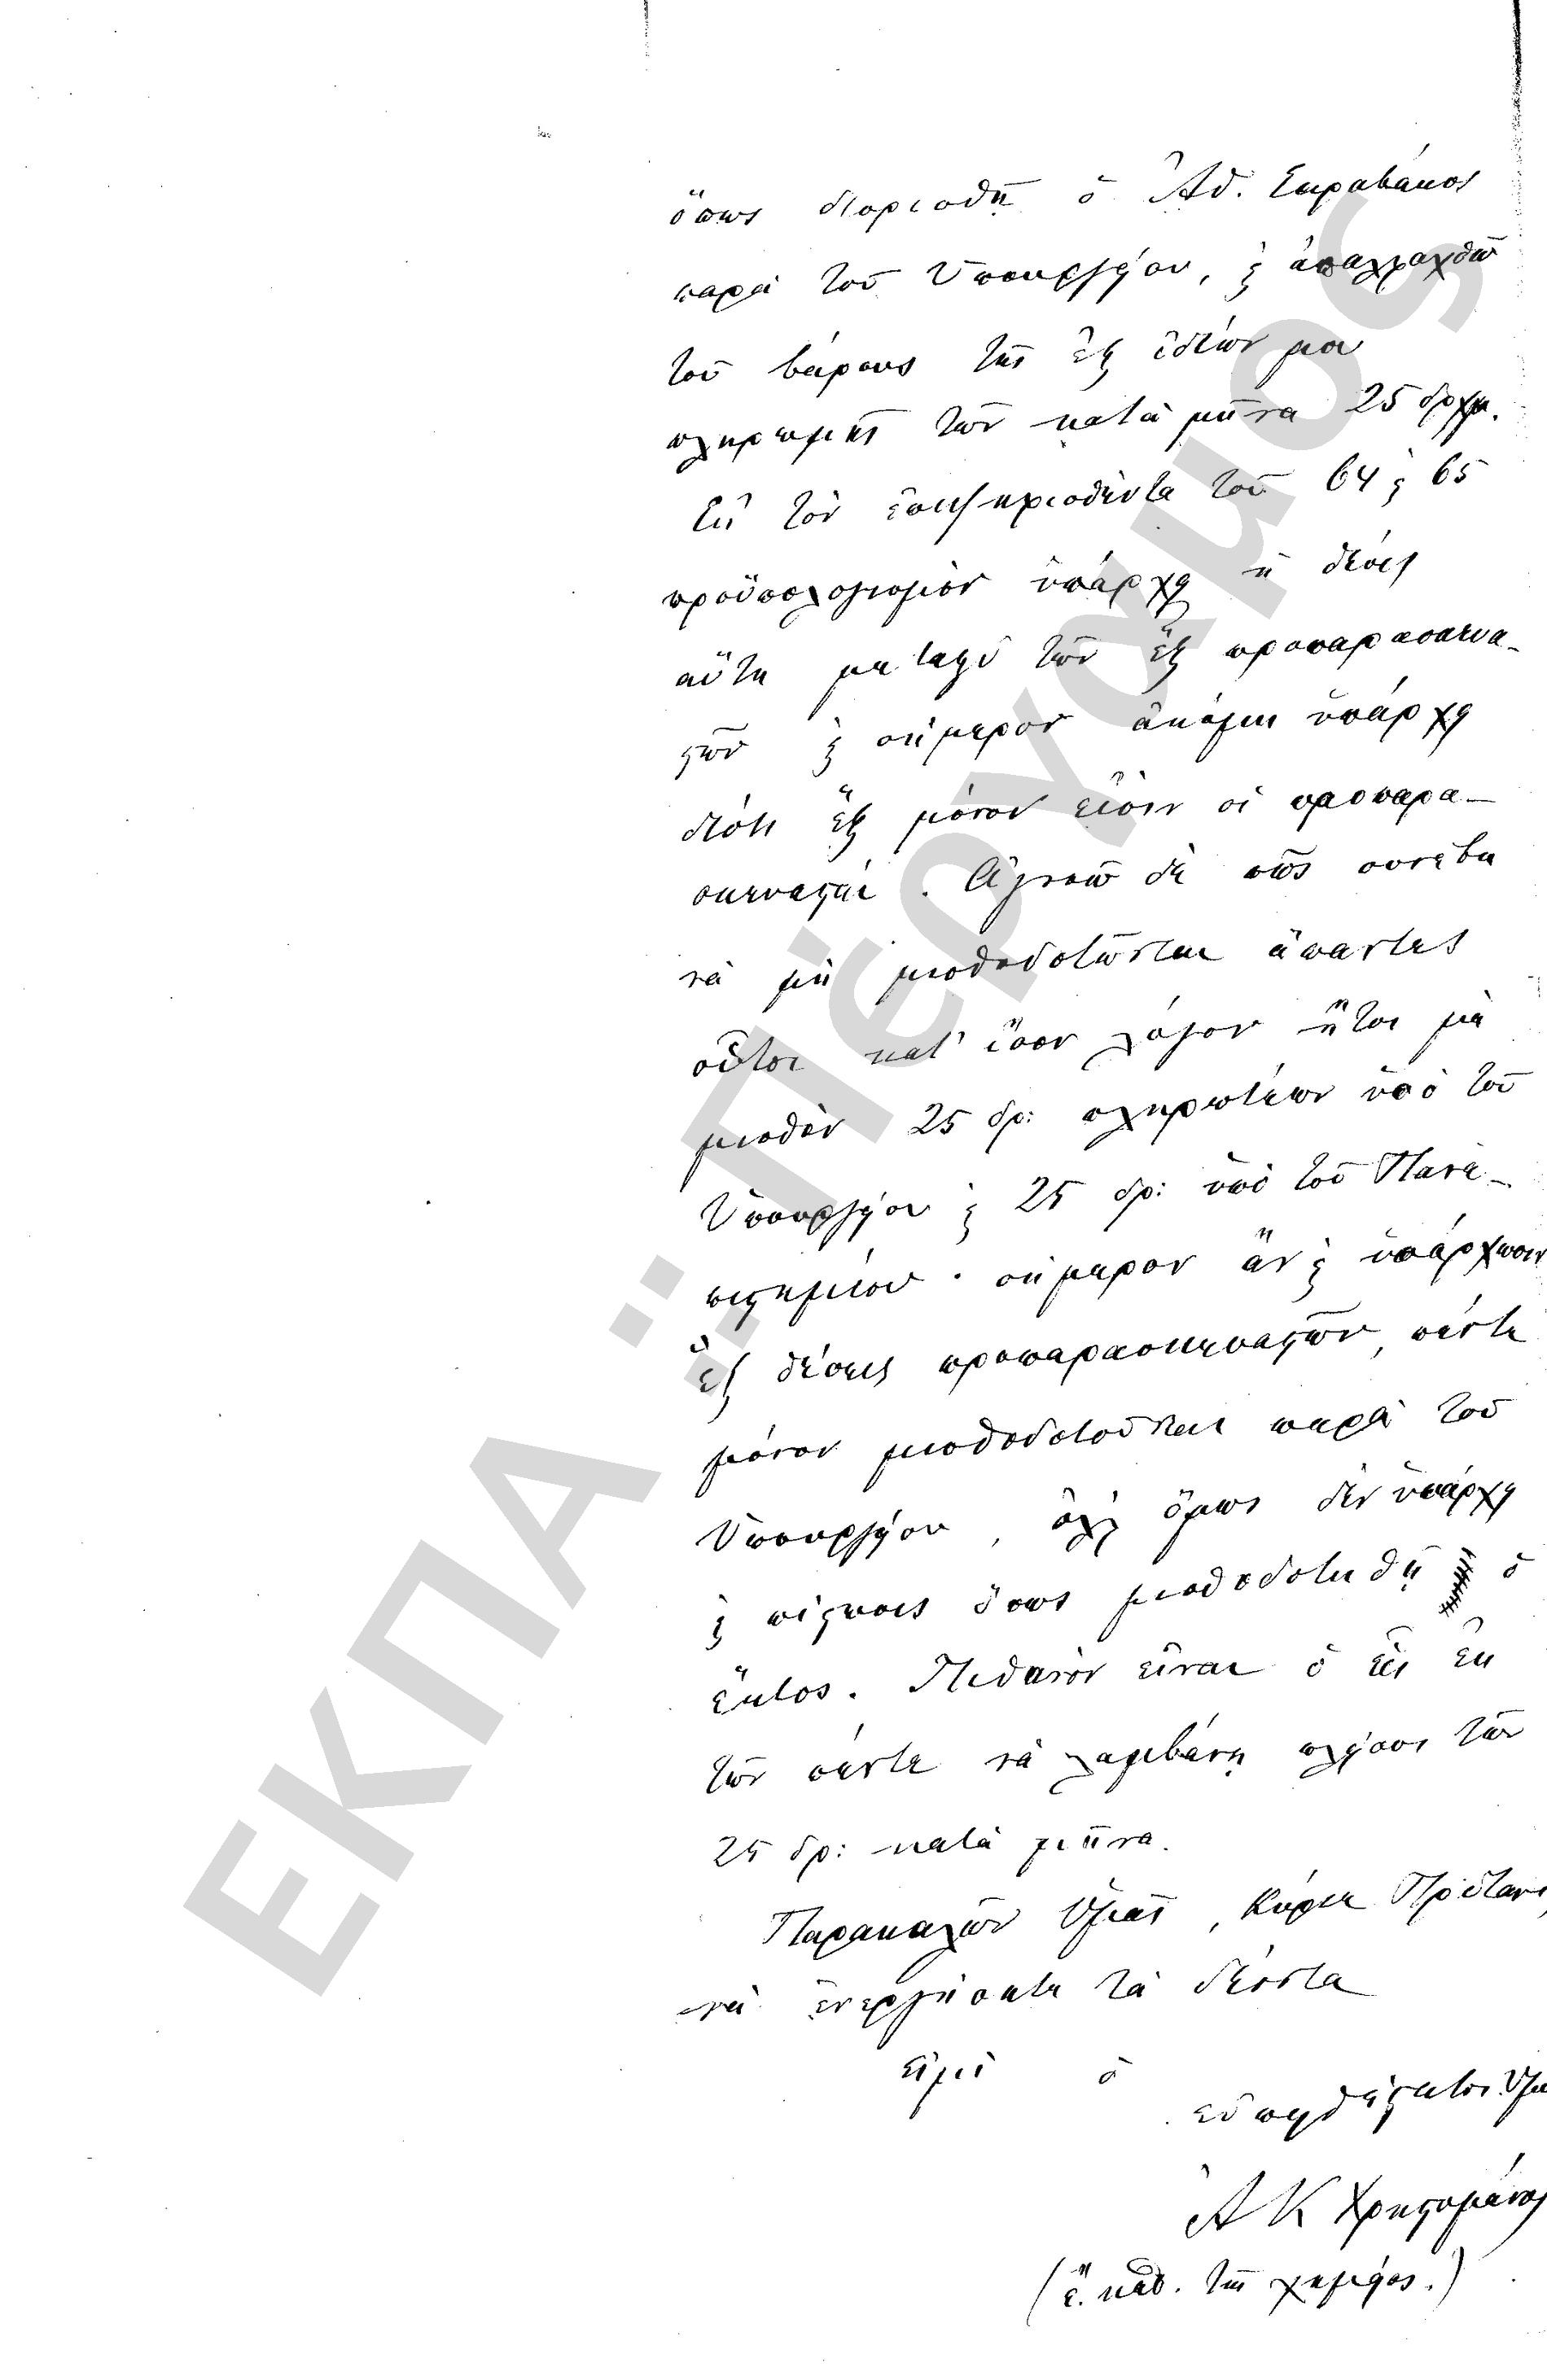 ὅπως διορισθῇ ὁ Ἀθ. Σκραβάνος
παρὰ τοῦ Ὑπουργείου, ϗ ἀπαλλαχθῶ
τοῦ βάρους τῆς ἐξ ἰδίων μου
πληρωμῆς τῶν κατὰ μῆνα 25 δρχμ.
Εἰς τὸν ἐπιψηφισθέντα τοῦ 64 ϗ 65
προϋπολογισμὸν ὑπάρχει ἡ θέσις
αὕτη μεταξὺ τῶν ἓξ προπαρασκευα-
στῶν ϗ σήμερον ἀκόμη ὑπάρχει
διότι ἓξ μόνον εἰσὶν οἱ προπαρα-
σκευασταί. Ἀγνοῶ δὲ πῶς συνέβη
νὰ μὴ μισθοδοτῶνται ἅπαντες
οὗτοι κατ' ἴσον λόγον ἤτοι μὲ
μισθὸν 25 δρ: πληρωτέων ὑπὸ τοῦ
Ὑπουργείου ϗ 25 δρ: ὑπὸ τοῦ Πανε-
πιστημίου · σήμερον ἂν ϗ ὑπάρχωσιν
ἓξ θέσεις προπαρασκευαστῶν, πέντε
μόνον μισθοδοτοῦνται παρὰ τοῦ
Ὑπουργείου, ὅμως δὲν ὑπάρχει
ϗ πίστωσις ὅπως μισθοδοτηθῇ ὁ
ἕκτος. Πιθανὸν εἶναι ὁ εἷς ἐκ
τῶν πέντε νὰ λαμβάνῃ πλείους τῶν
25 δρ: κατὰ μῆνα.
Παρακαλῶν Ὑμᾶς, Κύριε Πρύτανι,
νὰ ἐνεργήσητε τὰ δέοντα
εἰμὶ ὁ
εὐπειθέστατος Ὑμ
Ἀ Κ Χρηστομάνος
(ἔ. καθ. τῆς χημείας.)
ΕΚΠΑ - Πέργαμος